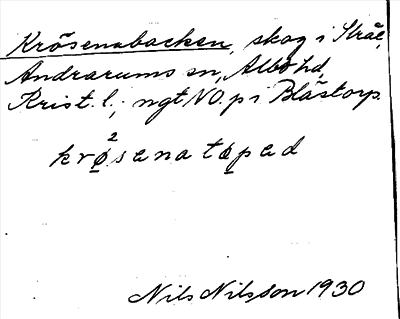 Krösenabacken, skog i Strål,
Andrarums sn, Albo hd,
Krist. l., ngt NO. p i Blästorp.
2
krø̱sena tø̱ped
Nils Nilsson 1930